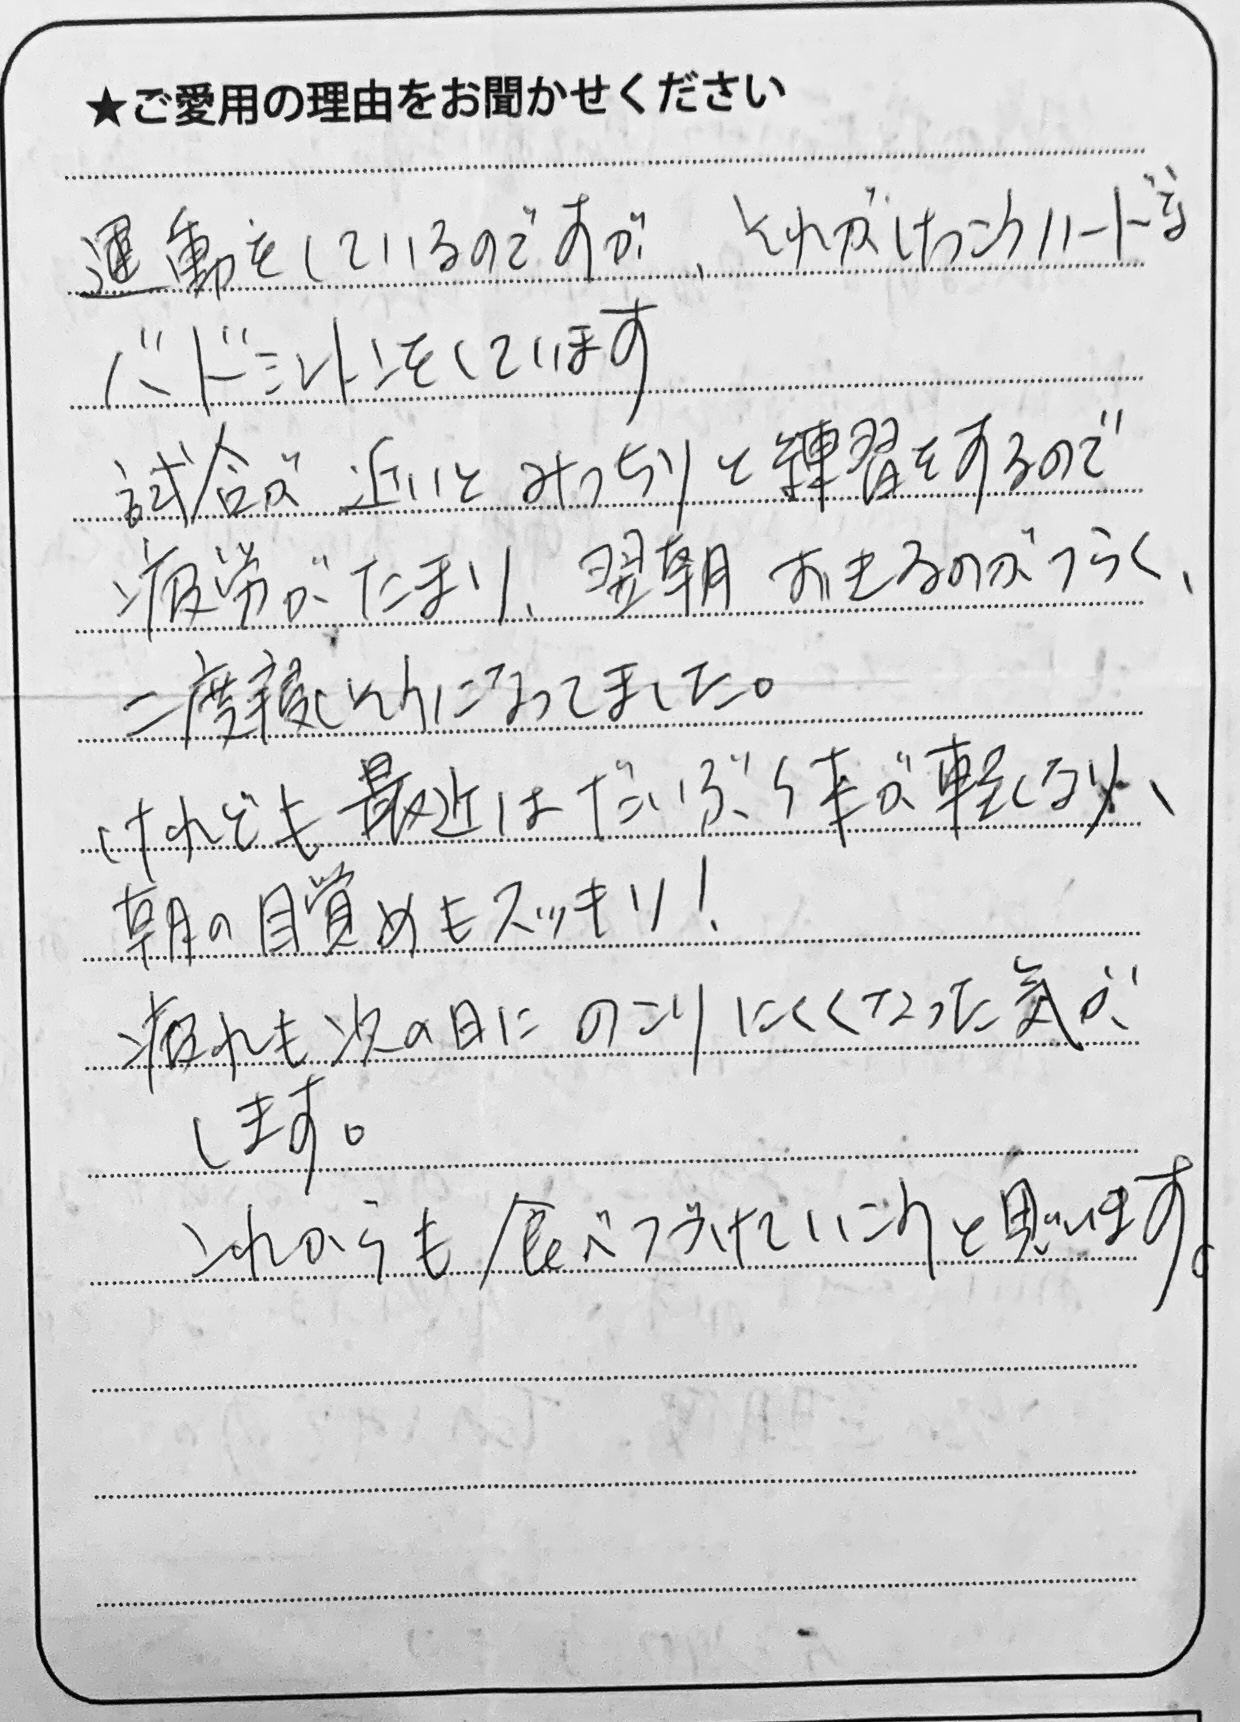 ★ご愛用の理由をお聞かせください
運動をしているのですが、それがけっこうハードな
バドミントンをしています
試合が近いとみっちりと練習をするので
疲労がたまり、翌朝おきるのがつらく、
二度寝しそうになってました。
けれども最近はだいぶ体が軽くなり、
朝の目覚めもスッキリ!
疲れも次の日にのこりにくくなった気が
します。
これからも食べつづけていこうと思います。